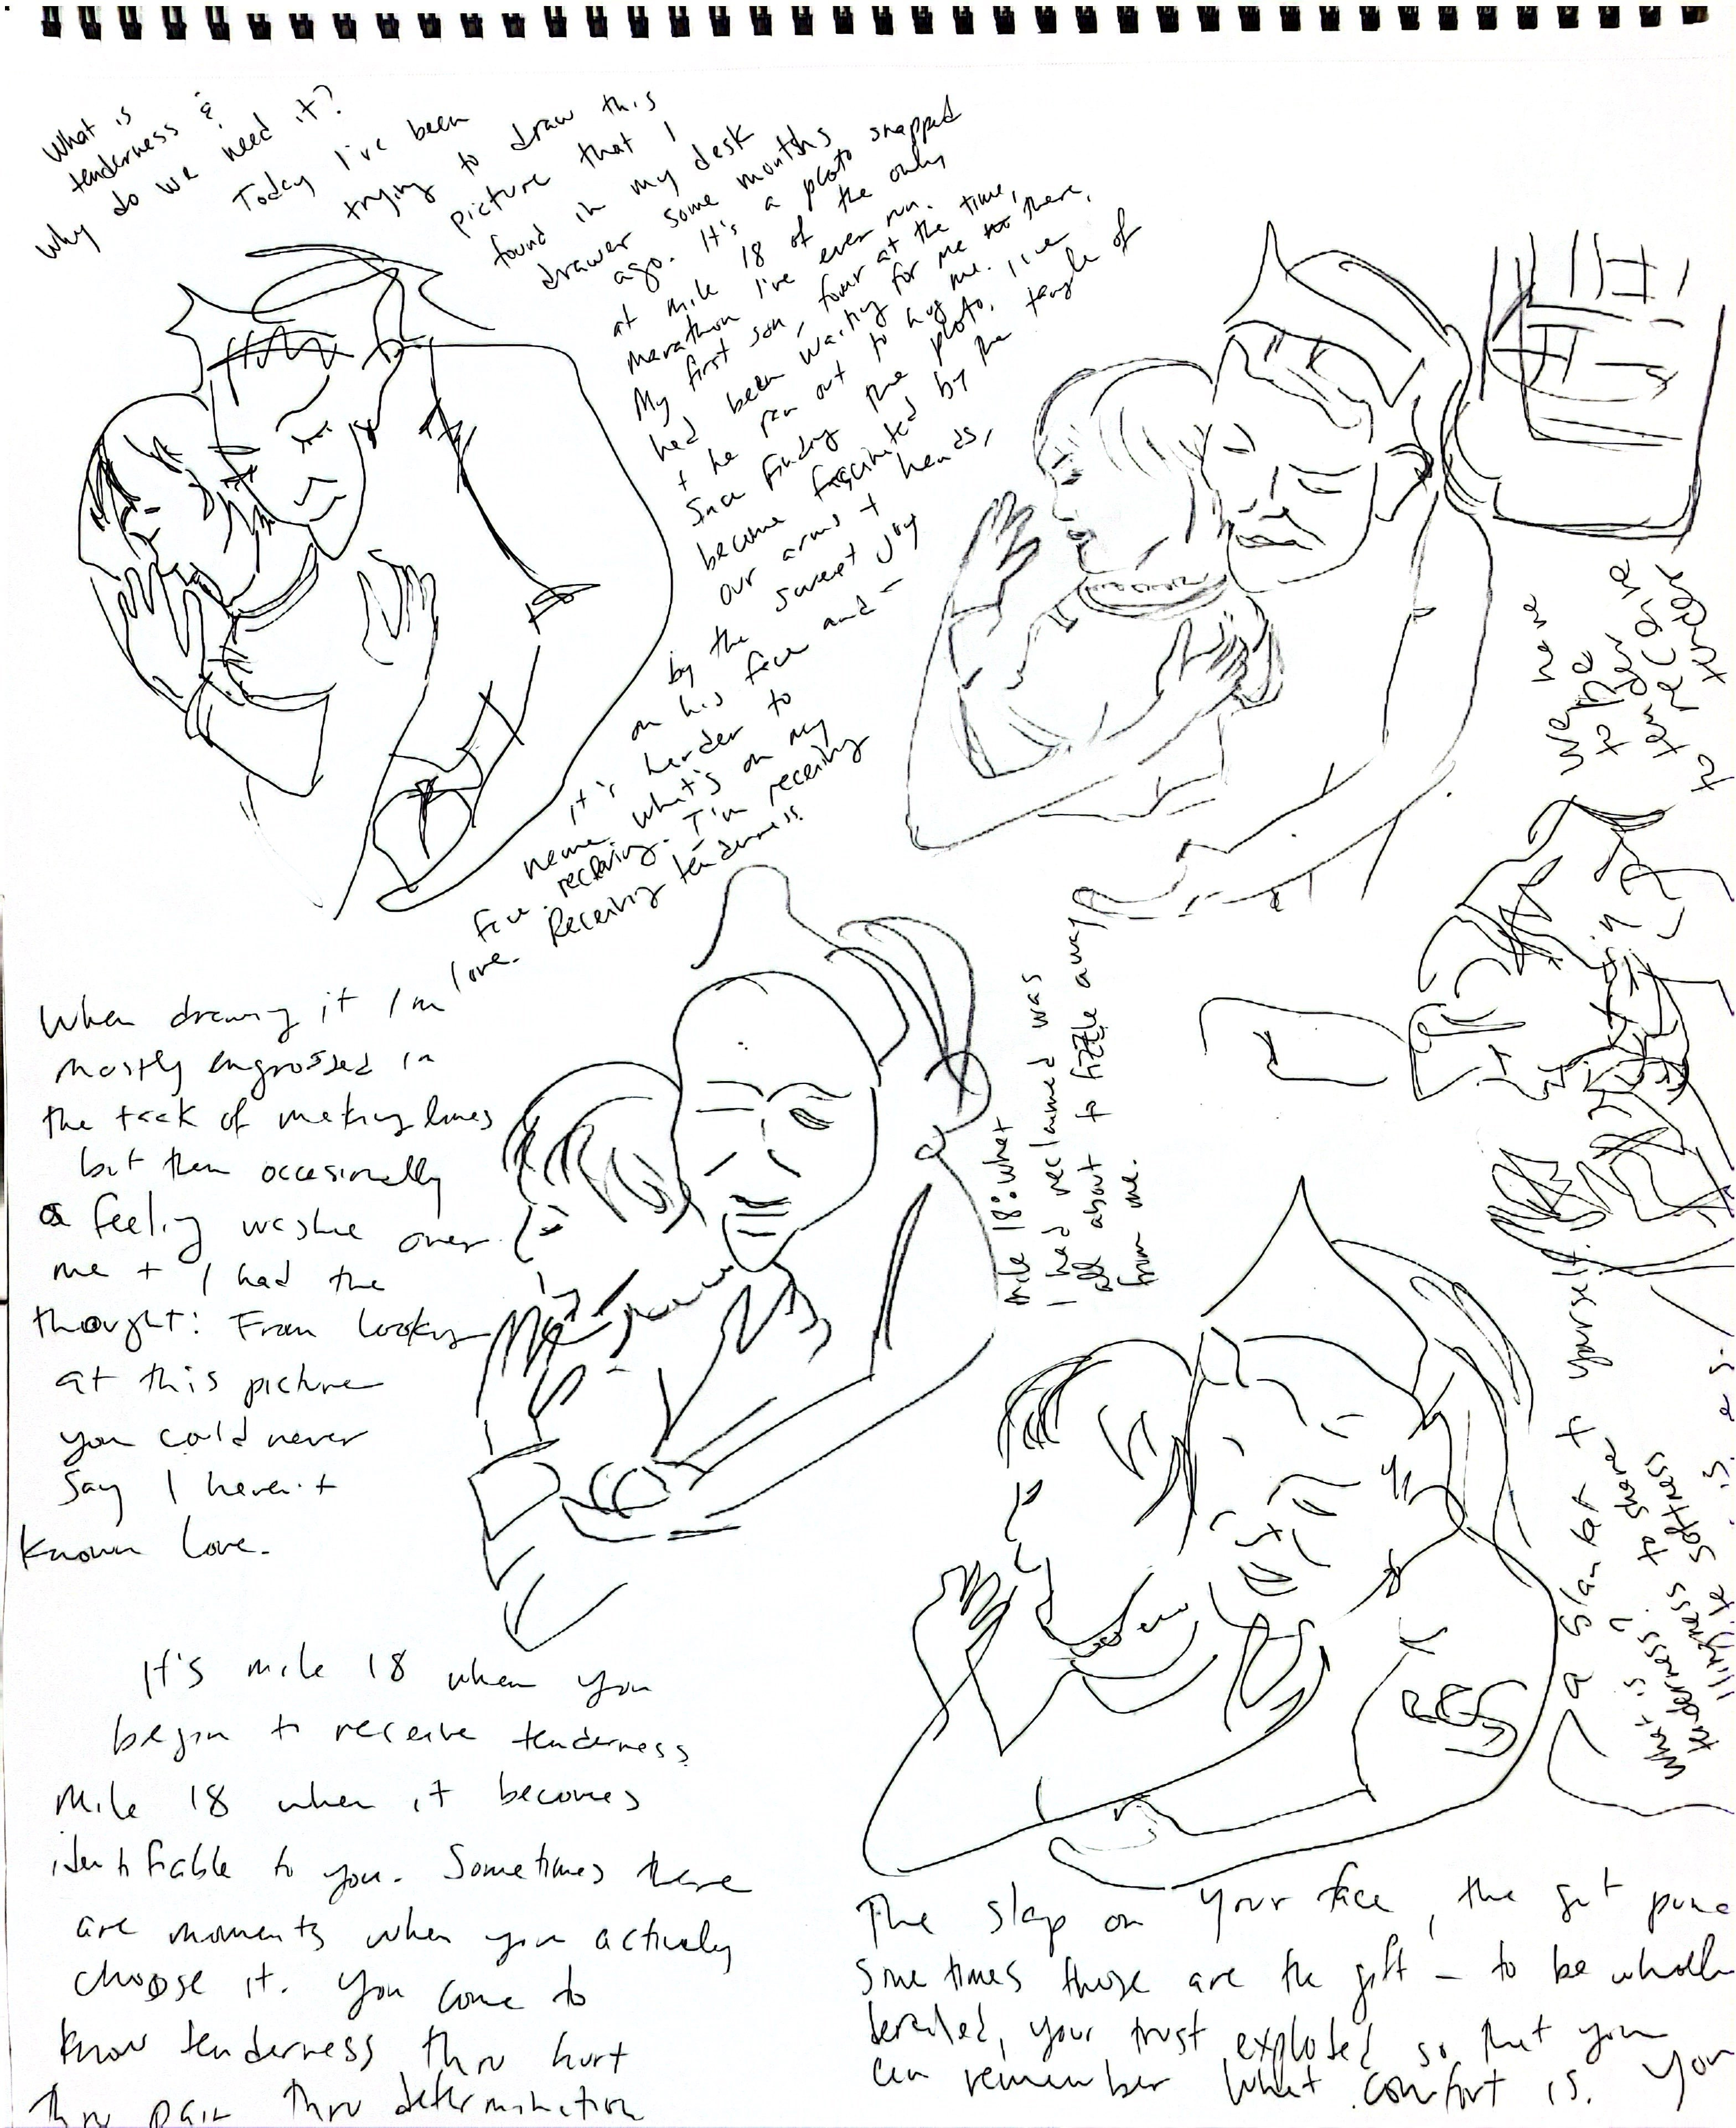 What is
tenderness &
why do we need it?
Today I've been
trying to draw this
picture that I
found in my desk
drawer some months
ago. It's a photo snapped
at mile 18 of the only
marathon I've ever run.
My first son, four at the time,
had been waiting for me there,
+ he ran out to hug me.
Since finding the photo, I've
become fascinated by the tangle of
our arms + heads,
by the sweet joy
on his face and –
it's harder to
name what's on my
face. I'm receiving
love. Receiving tenderness
When drawing it I'm
mostly engrossed in
the task of making lines
but then occasionally
a feeling washes over
me + I had the
thought: From looking
at this picture
you could never
say I haven't
known love.
It's mile 18 when you
begin to receive tenderness
Mile 18 when it becomes
identifiable to you. Sometimes there
are moments when you actively
choose it. You come to
know tenderness thru hurt
thru pain thru determination
Mile 18: what
I had reclaimed was
all about to fizzle away
from me.
We have
to be
tender
to receive
tender
a slant to yourself.
What is
tenderness?
to share
softness
The slap on your face, the gut
Sometimes those are the gift – to be
derailed, your trust exploded so that you
can remember what comfort is. You